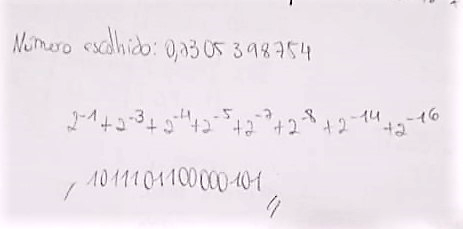 Número escolhido: 0,7305398754
2⁻¹+2⁻³+2⁻⁴+2⁻⁵+2⁻⁷+2⁻⁸+2⁻¹⁴+2⁻¹⁶
,1011101100000101,,